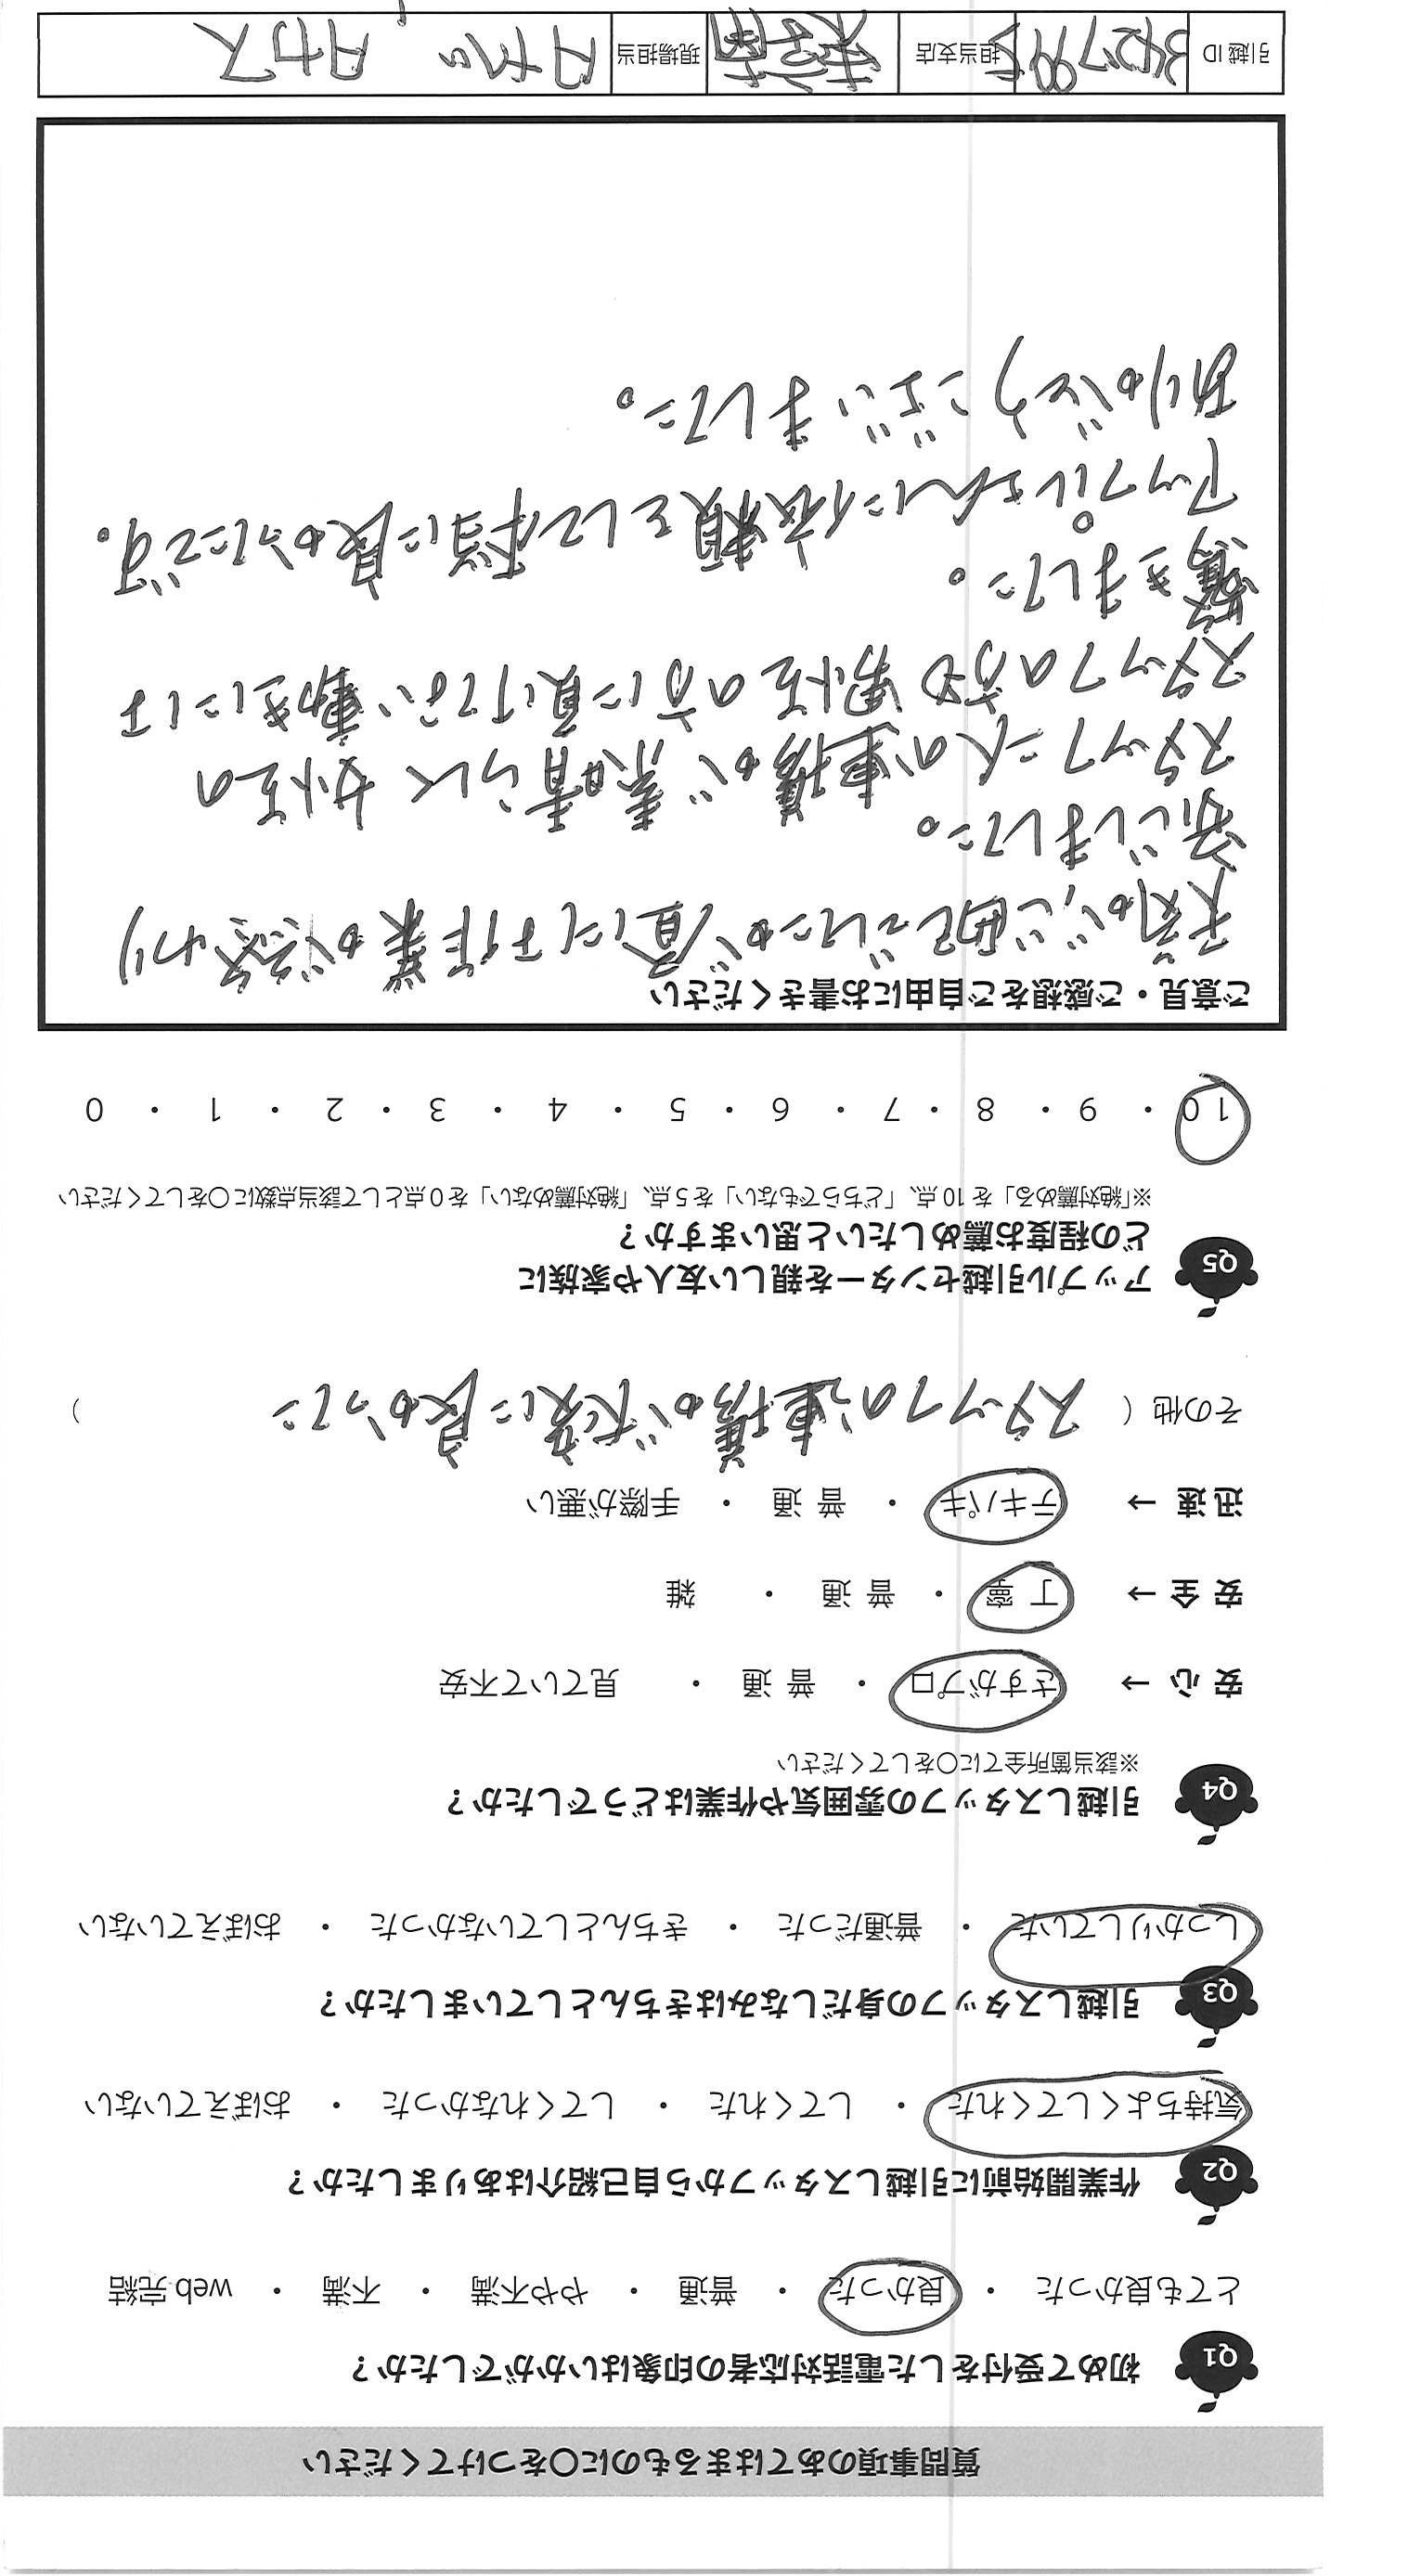 質問事項のあてはまるものに〇をつけてください
Q1 初めて受付をした電話対応者の印象はいかがでしたか？
とても良かった ・ 良かった ・ 普通 ・ やや不満 ・ 不満 ・ web 完結
Q2 作業開始前に引越しスタッフから自己紹介はありましたか？
気持ちよくしてくれた ・ してくれた ・ してくれなかった ・ おぼえていない
Q3 引越しスタッフの身だしなみはきちんとしていましたか？
しっかりしていた ・ 普通だった ・ きちんとしていなかった ・ おぼえていない
Q4 引越しスタッフの雰囲気や作業はどうでしたか？
※該当箇所全てに〇をしてください
安 心 → さすがプロ ・ 普 通 ・ 見ていて不安
安 全 → 丁 寧 ・ 普 通 ・ 雑
迅 速 → テキパキ ・ 普 通 ・ 手際が悪い
その他（ スタッフの連携が大変に良かった ）
Q5 アップル引越センターを親しい友人や家族に
どの程度お薦めしたいと思いますか？
※「絶対薦める」を 10 点、「どちらでもない」を 5 点、「絶対薦めない」を 0 点として該当点数に〇をしてください
10 ・ 9 ・ 8 ・ 7 ・ 6 ・ 5 ・ 4 ・ 3 ・ 2 ・ 1 ・ 0
ご意見・ご感想をご自由にお書きください
天気がご面でしたが直にて作業が終わり
安心しました。
スタッフ二人の連携が素晴らしく 女性の
スタッフの方も男性の方に負けない動きには
驚きました。
アップルさんに依頼をして本当に良かったです。
ありがとうございました。
引越 ID 担当支店 現場担当